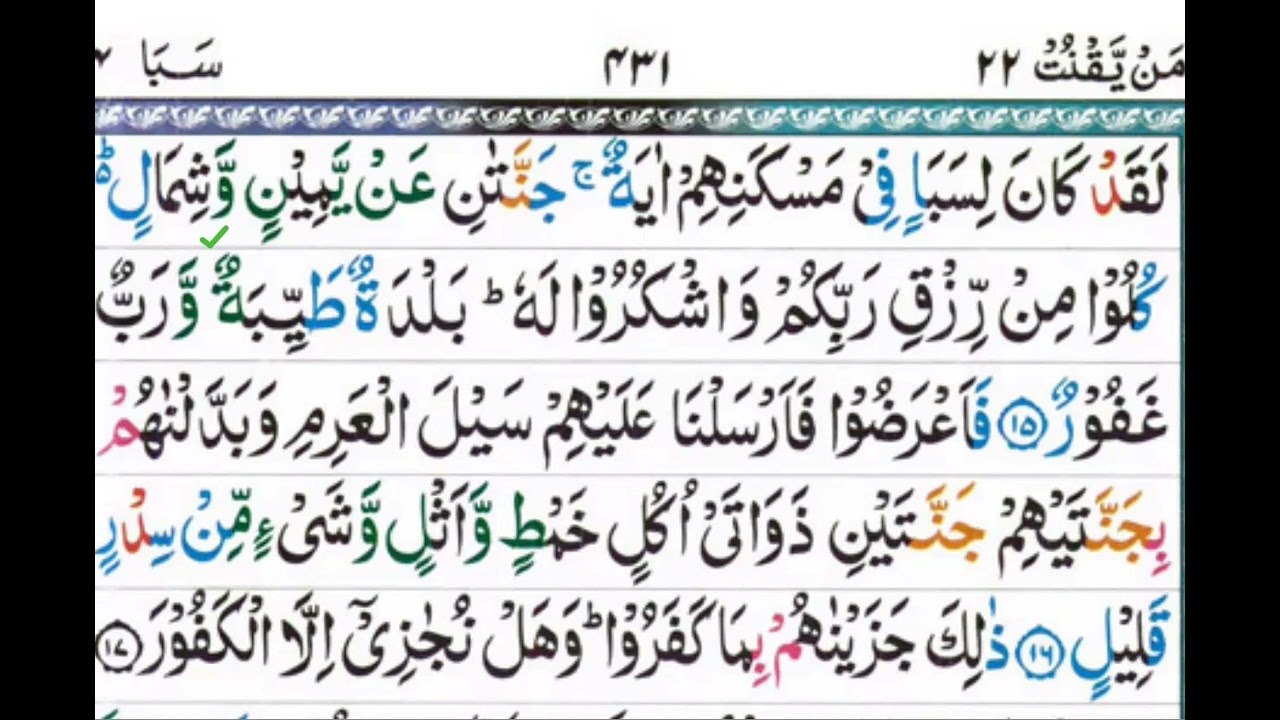 مَنْ يَّقْنُتْ ٢٢ ۴۳۱ سَبَا
لَقَدْ كَانَ لِسَبَاٍ فِىْ مَسْكَنِهِمْ اٰيَةٌ ۚ جَنَّتٰنِ عَنْ يَّمِيْنٍ وَّشِمَالٍ ؕ۬
كُلُوْا مِنْ رِّزْقِ رَبِّكُمْ وَاشْكُرُوْا لَهٗ ؕ بَلْدَةٌ طَيِّبَةٌ وَّ رَبٌّ
غَفُوْرٌ ﴿١٥﴾ فَاَعْرَضُوْا فَاَرْسَلْنَا عَلَيْهِمْ سَيْلَ الْعَرِمِ وَبَدَّلْنٰهُمْ
بِجَنَّتَيْهِمْ جَنَّتَيْنِ ذَوَاتَىْ اُكُلٍ خَمْطٍ وَّاَثْلٍ وَّشَىْءٍ مِّنْ سِدْرٍ
قَلِيْلٍ ﴿١٦﴾ ذٰلِكَ جَزَيْنٰهُمْ بِمَا كَفَرُوْا ؕ وَهَلْ نُجٰزِىْۤ اِلَّا الْكَفُوْرَ ﴿١٧﴾